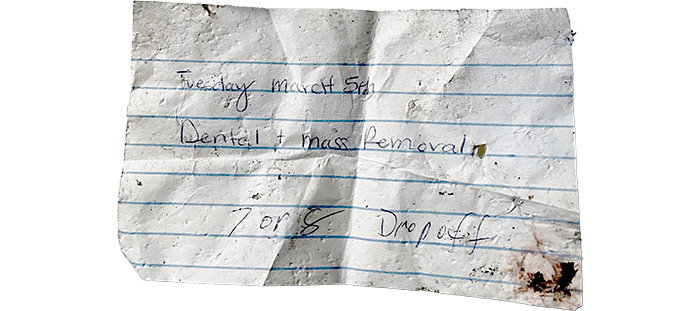 Tuesday march 5th
Dental + mass Removal
7 or 8 Dropoff